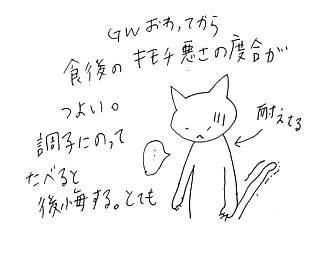 GWおわってから
食後のキモチ悪さの度合が
つよい。
調子にのって
たべると
後悔する。とても
耐えてる